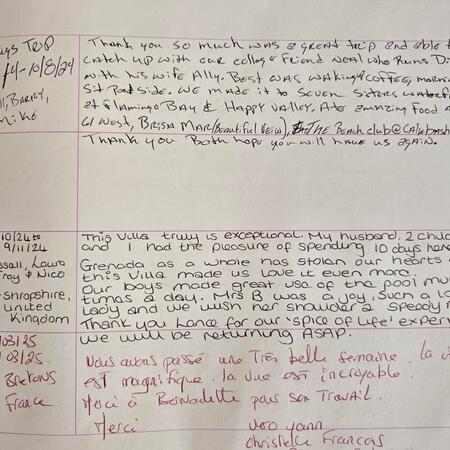 Days Top
/4-10/8/24
, Barry,
Mike
Thank you so much was a great trip and able t
catch up with our college Friend Neal who Runs Di
with his wife Ally. Best was waking, coffee, mornin
Sit Poolside. We made it to Seven Sisters waterf
at Flamingo Bay & Happy Valley. Ate amazing food a
61 West, Brisa Mar (beautiful veiw), The Beach club @ Calabash
Thank you Both hope you will have us again.
10/24 to
9/11/24
ssell, Laura
roy & Nico
Shropshire,
United
Kingdom
This Villa truly is exceptional. My husband, 2 childr
and I had the pleasure of spending 10 days here
Grenada as a whole has stolen our hearts a
this villa made us love it even more.
Our boys made great use of the pool mul
times a day. Mrs B was a joy. Such a lo
lady and we wish her shoulder a speedy r
Thank you Lance for our 'spice of life' experi
we will be returning ASAP.
03/25
03/25.
Bretons
France
Nous avons passé une Très belle semaine. la v
est magnifique. la vue est incroyable.
Merci à Bernadette pour son Travail.
Merci
Vero yann
christelle François